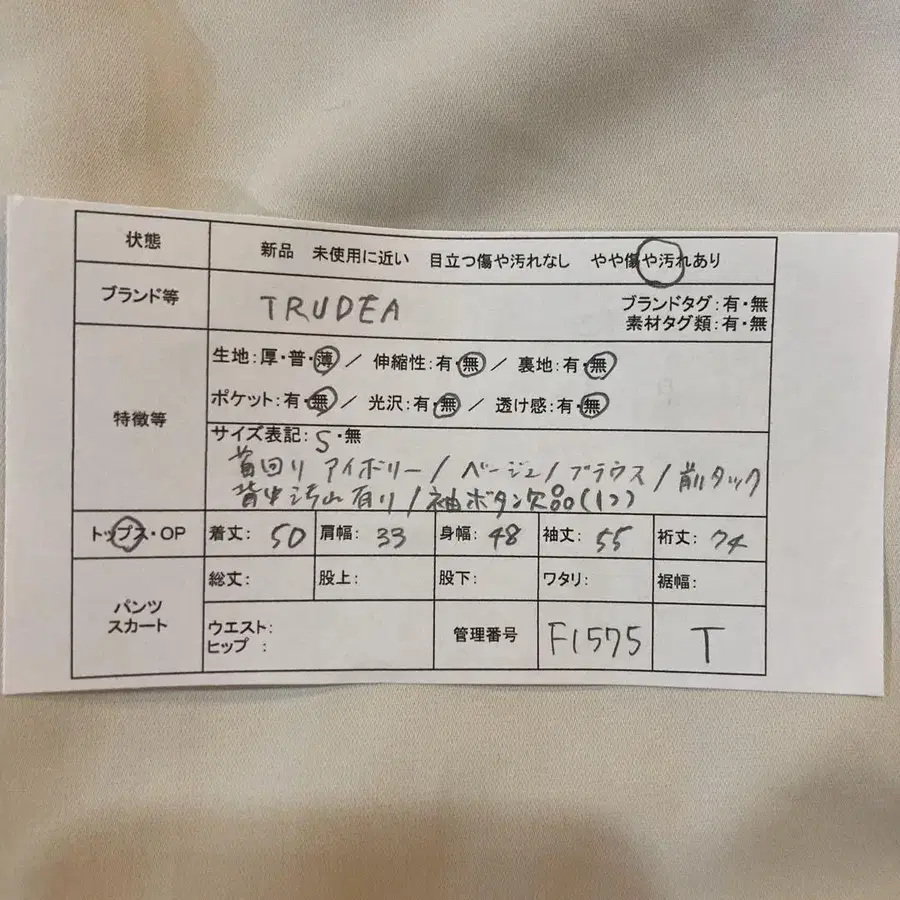 状態 新品 未使用に近い 目立つ傷や汚れなし やや傷や汚れあり
ブランド等 TRUDEA ブランドタグ:有・無
素材タグ類:有・無
特徴等 生地:厚・普・薄 / 伸縮性:有・無 / 裏地:有・無
ポケット:有・無 / 光沢:有・無 / 透け感:有・無
サイズ表記:S・無
首回り アイボリー/ベージュ/ブラウス/前タック
背中汚れ有り/袖ボタン欠品(1つ)
トップス・OP 着丈: 50 肩幅: 33 身幅: 48 袖丈: 55 裄丈: 74
パンツ スカート 総丈: 股上: 股下: ワタリ: 裾幅:
ウエスト:
ヒップ : 管理番号 F1575 T